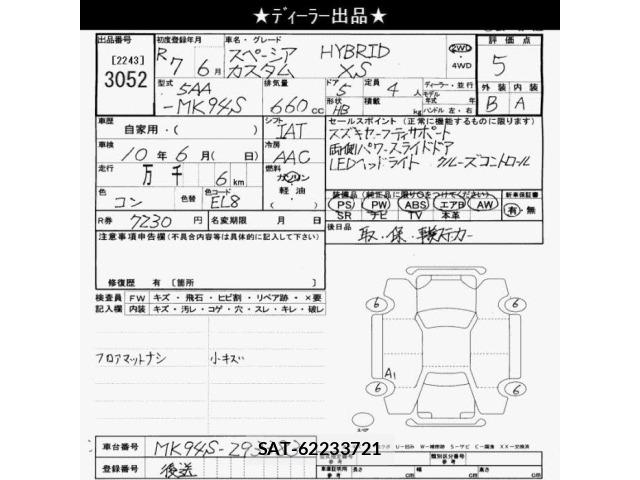 ★ディーラー出品★
出品番号
[2243]
3052
初度登録年月
R7年6月
車名・グレード
スペーシア HYBRID
カスタム XS
2WD
4WD
評価点
5
外装 内装
B A
型式
5AA
-MK94S
排気量
660cc
ドア
5
形状
HB
定員
4人
積載
kg
ディーラー・並行
モデル
年式 年
ハンドル 左・右
車歴
自家用・( )
シフト
IAT
セールスポイント(正常に機能するものに限ります)
スズキセーフティサポート
両側パワースライドドア
LEDヘッドライト クルーズコントロール
車検
10年6月( 日)
冷房
AAC
走行
万 千 6km
燃料
ガソリン
軽油
( )
色
コン
色替
色コード
EL8
装備品(純正品に限り○をつけてください)
PS PW ABS エアB AW
SR ナビ TV 本革
新車保証書
有・無
R券 7230円
名変期限 月 日
後日品
取・保・車検ステッカー
注意事項申告欄(不具合内容等は具体的に記入して下さい)
修復歴 有〔箇所 〕
検査員 FW キズ・飛石・ヒビ割・リペア跡・×要
記入欄 内装 キズ・汚レ・コゲ・穴・スレ・キレ・破レ
フロアマットナシ 小キズ
6 6
A1
6 6
車台番号 MK94S-293
SAT-62233721
登録番号 後送
長さ cm 幅 cm 高さ cm